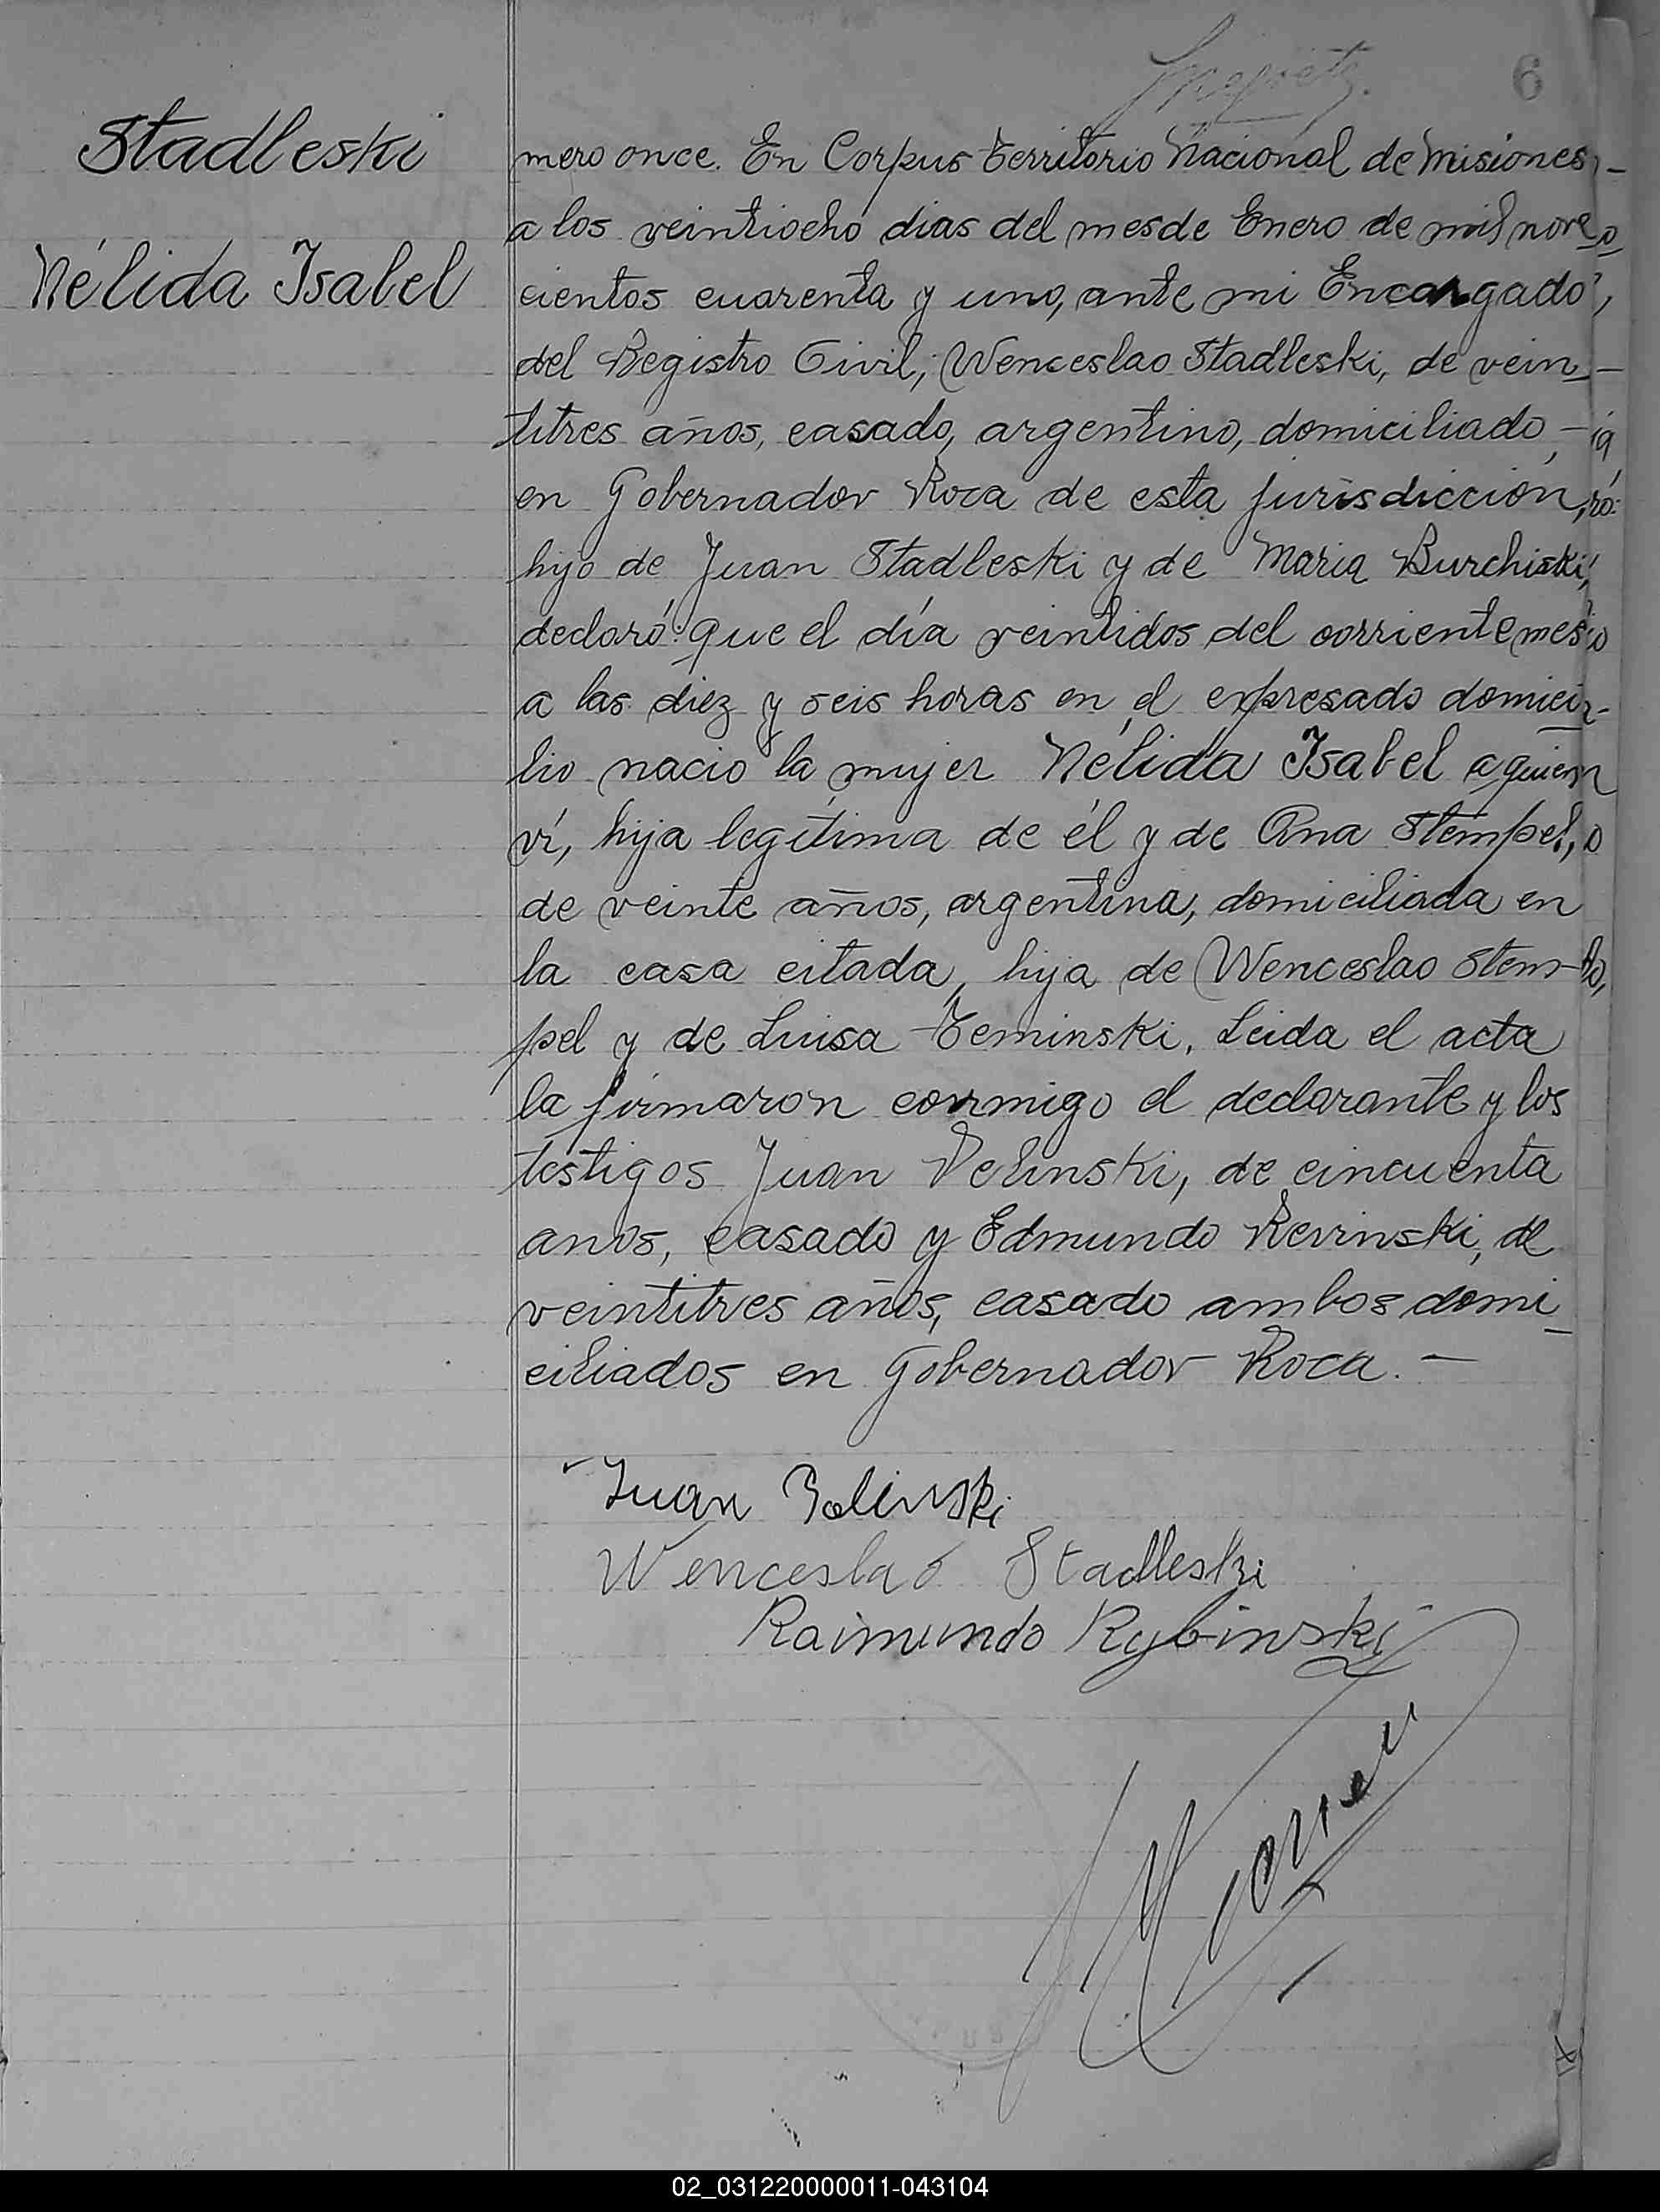 6
Stadleski
Nélida Isabel
mero once. En Corpus territorio Nacional de Misiones,
a los veintiocho dias del mes de Enero de mil nove
cientos cuarenta y uno, ante mi Encargado
del Registro Civil, Wenceslao Stadleski, de vein-
titres años, casado, argentino, domiciliado,
en Gobernador Roca de esta jurisdicción,
hijo de Juan Stadleski y de Maria Burchiski,
declaró: que el día veintidos del corriente mes
a las diez y seis horas en el expresado domici-
lio nacio la mujer Nélida Isabel a quien
ví, hija legítima de él y de Ana Stempel,
de veinte años, argentina, domiciliada en
la casa citada, hija de Wenceslao Stem-
pel y de Luisa Teminski. Leida el acta
la firmaron conmigo el declarante y los
testigos Juan Velinski, de cincuenta
anos, casado y Edmundo Revinski, de
veintitres años, casado ambos domi_
ciliados en Gobernador Roca. —
Juan Solinski
Wenceslao Stadleski
Raimundo Rybinski
02_031220000011-043104